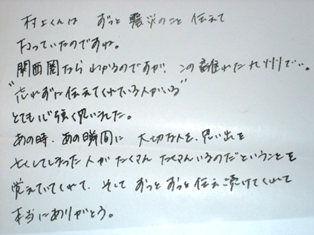 村上くんは ずっと 震災のこと 伝えて
たっていたのですか。
関西圏なら わかるのですが、この 離れた九州で…。
"忘れずに伝えてくれている人がいる"
とても心強く思いました。
あの時、あの瞬間に 大切な人を、思い出を
亡くしてしまった人が たくさん たくさんいるのだということを
覚えていてくれて、そして ずっと ずっと 伝え続けてくれて
本当にありがとう。